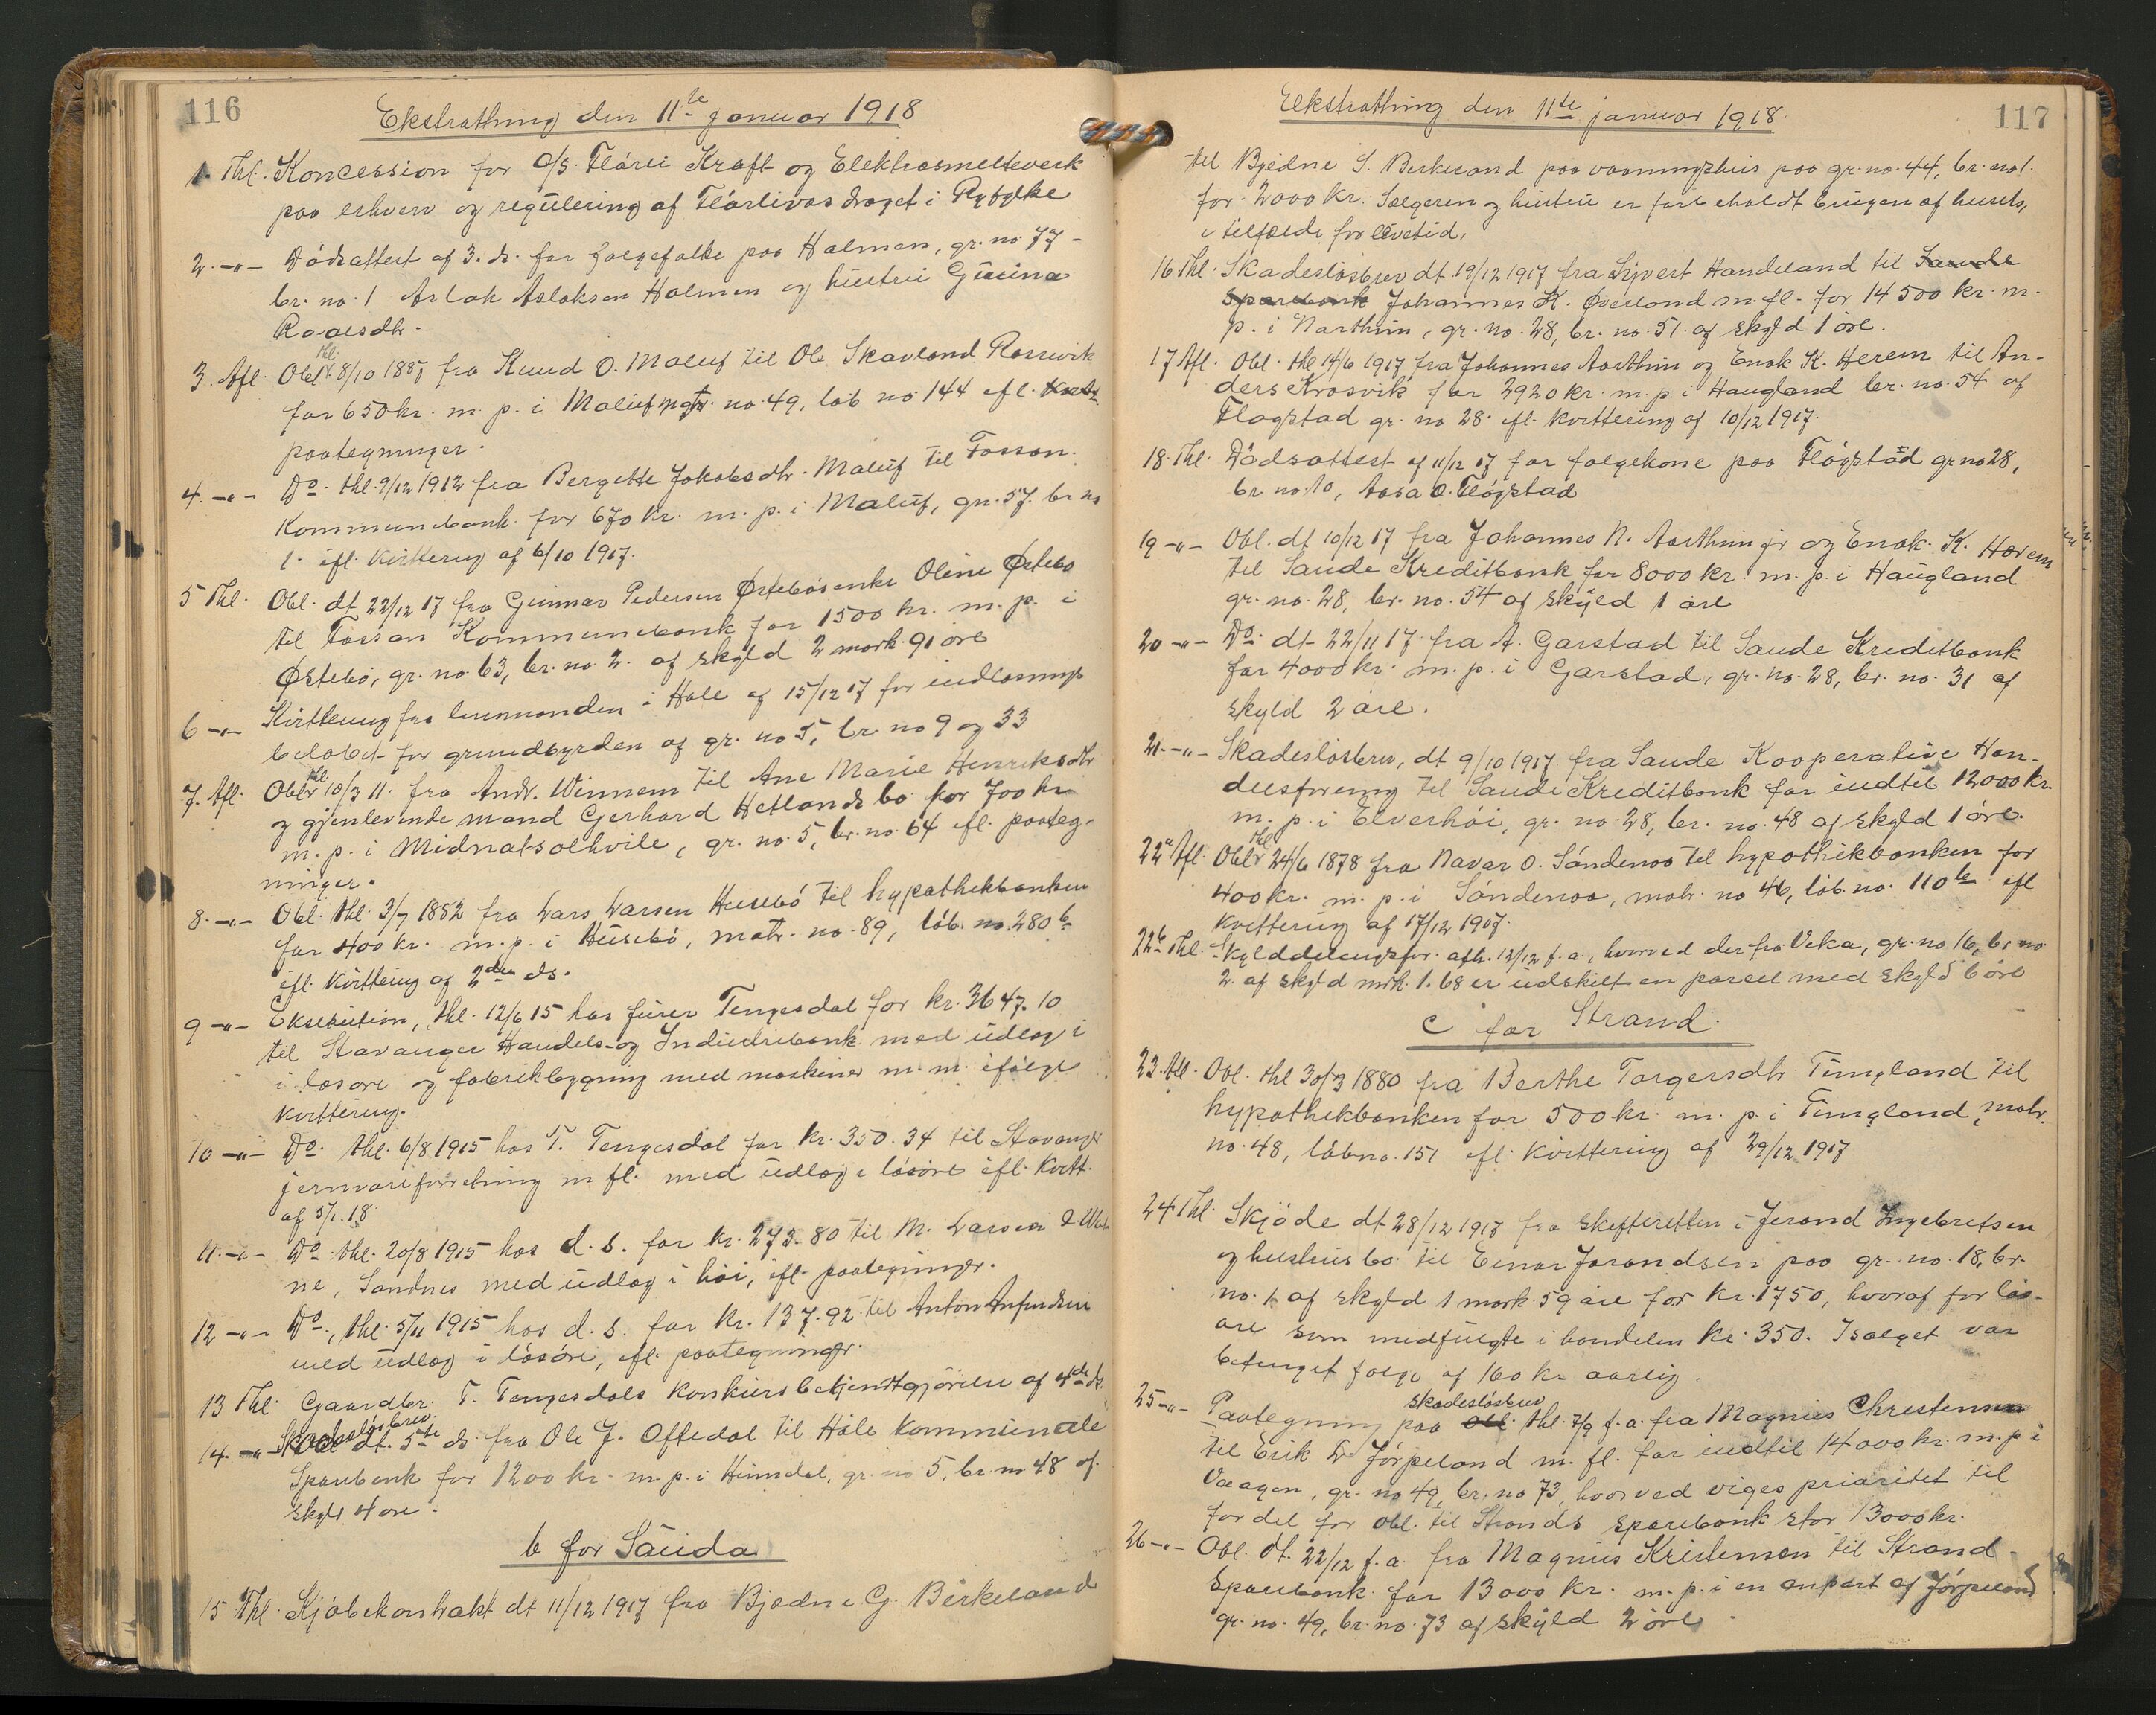 116
Ekstrathing den 11te januar 1918
1. Thl. Koncession for A/S. Flörli Kraft og Elektrosmelteverk
paa erhverv og regulering af Flörlivasdraget i Ryfylke
2. -"- Dödsattest af 3. ds. for folgefolke paa Holmen, gr. no. 77 -
br. no. 1 Aslak Aslaksen Holmen og hustru Gurina
Roalsdtr.
3. Afl. Obl. thl. 8/10 1887 fra Knud O. Maluf til Ole Skavland Rossevik
for 650 kr. m. p. i Maluf mtr. no. 49, löb no 144 efl.
paategninger.
4. -"- Do. thl. 9/12 1912 fra Bergitte Jakobsdtr. Maluf til Fossan
Kommunebank for 670 kr. m. p. i Maluf, gn. 57. br. no
1. ifl. kvittering af 6/10 1917.
5 Thl. Obl. dt 22/12 17 fra Gunnar Pedersen Östebös enke Oline Östebö
til Fossan Kommunebank for 1500 kr. m. p. i
Östebö, gr. no. 63, br. no. 2. af skyld 2 mark 91 öre
6 -"- Kvittering fra lensmanden i Hole af 15/12 17 for indlösnings
belöbet for grundbyrden af gr. no 5, br. no 9 og 33
7. Afl. Obl. thl 10/3 11. fra Andr. Winnem til Ane Marie Henriksdtr
og gjenlevende mand Gerhard Hetlands bo for 700 kr
m. p. i Midnatsolhvile, gr. no. 5, br. no. 64 efl. paateg-
ninger.
8. -"- Obl. thl. 3/7 1882 fra Lars Larsen Husebö til hypothekbanken
for 400 kr. m. p. i Husebö, matr. no. 89, löb. no. 280 b
ifl. kvittering af 2den ds.
9 -"- Eksekution, thl. 12/6 15 hos furer Tengesdal for kr. 3647. 10
til Stavanger Handels- og Industribank med udlæg i
i lösöre og fabrikbygning med maskiner m. m. ifölge
kvittering.
10 -"- Do. thl. 6/8 1915 hos T. Tengesdal for kr. 350. 34 til Stavanger
jernvareforretning m fl. med udlæg i lösöre ifl. kvitt.
af 5/1. 18
11. -"- Do. thl. 20/8 1915 hos d. s. for kr. 273. 80 til M. Larsen &
ne, Sandnes med udlæg i höi, ifl. paategninger.
12 -"- Do., thl. 5/11 1915 hos d. s. for kr. 137. 92 til Anton Anfindsen
med udlæg i lösöre, efl. paategninger.
13 Thl. Gaardbr. T. Tengesdals konkursbekjendtgjörelse af 4de ds.
14. -"- Skadeslösbrev dt. 5te ds fra Ole J. Oftedal til Höle Kommunale
Sparebank for 1200 kr. m. p. i Hinndal, gr. no 5, br. no 48 af
skyld 4 öre.
b for Sauda
15 Thl. Kjöbekontrakt dt 11/12 1917 fra Bjedne G. Birkeland
117
Ekstrathing den 11te januar 1918.
til Bjedne S. Birkeland paa vaaningshus paa gr. no. 44, br. no 1.
for 2000 kr. Sælgeren og hustru er forbeholdt brugen af husets,
i tilfælde for levetid.
16 Thl. Skadeslösbrev dt. 19/12 1917 fra Sjvert Handeland til Saude
Sparebank Johannes K. Överland m. fl. for 14500 kr. m.
p. i Aarthun, gr. no. 28, br. no. 51 af skyld 1 öre.
17 Afl. Obl. thl 14/6 1917 fra Johannes Aarthun og Enok K. Herem til An-
ders Krosvik for 2920 kr. m. p. i Haugland br. no. 54 af
Flogstad gr. no 28 efl. kvittering af 10/12 1917.
18. Thl. Dödsattest af 11/12 17 for folgekone paa Flögstad gr no 28,
br no. 10, Aasa O. Flögstad
19 -"- Obl. dt 10/12 17 fra Johannes N. Aarthun jr og Enok K. Herem
til Saude Kreditbank for 8000 kr. m. p. i Haugland
gr. no. 28, br. no. 54 af skyld 1 öre
20 -"- Do. dt 22/11 17 fra A. Garstad til Saude Kreditbank
for 4000 kr. m. p. i Garstad, gr. no. 28, br. no. 31 af
skyld 2 öre.
21. -"- Skadeslösbrev, dt 9/10 1917 fra Saude Kooperative Han-
delsforening til Saude Kreditbank for indtil 12000 kr.
m. p. i Elverhöi, gr. no. 28, br. no. 48 af skyld 1 öre.
22a Afl. Obl. thl 24/6 1878 fra Navar O. Söndenaa til hypothekbanken for
400 kr. m. p. i Söndenaa, matr. no 46, löb. no. 110 b efl
kvittering af 17/12 1907.
22b Thl. Skylddelingsfor. afh. 12/12 f. a., hvorved der fra Veka, gr. no 16, br no
2. af skyld mrk. 1. 68 er udskilt en parcel med skyld 6 öre
c for Strand.
23. Afl. Obl. thl 30/3 1880 fra Berthe Torgersdtr Tungland til
hypothekbanken for 500 kr. m. p. i Tungland, matr.
no. 48, löbno. 151 efl. kvittering af 29/12 1917
24 Thl. Skjöde dt 28/12 1917 fra skifteretten i Jerand Ingebretsen
og hustrus bo til Einar Jorandsen paa gr. no. 18, br.
no. 1. af skyld 1 mark 59 öre for kr. 1750, hvoraf for lös-
öre som medfulgte i handelen kr. 350. I salget var
betinget folge af 160 kr aarlig.
25 -"- Paategning paa Obl. skadeslösbrev thl. 7/9 f. a. fra Magnus Christensen
til Erik L. Jörpeland m. fl. for indtil 14000 kr. m. p i
Vaagen, gr. no 49, br. no 73, hvorved viges prioritet til
fordel for obl. til Strands Sparebank stor 13000 kr.
26 -"- Obl. dt. 22/12 f. a. fra Magnus Kristensen til Strand
Sparebank for 13000 kr. m. p. i en anpart af Jörpeland
gr. no. 49, br. no. 73 af skyld 2 öre